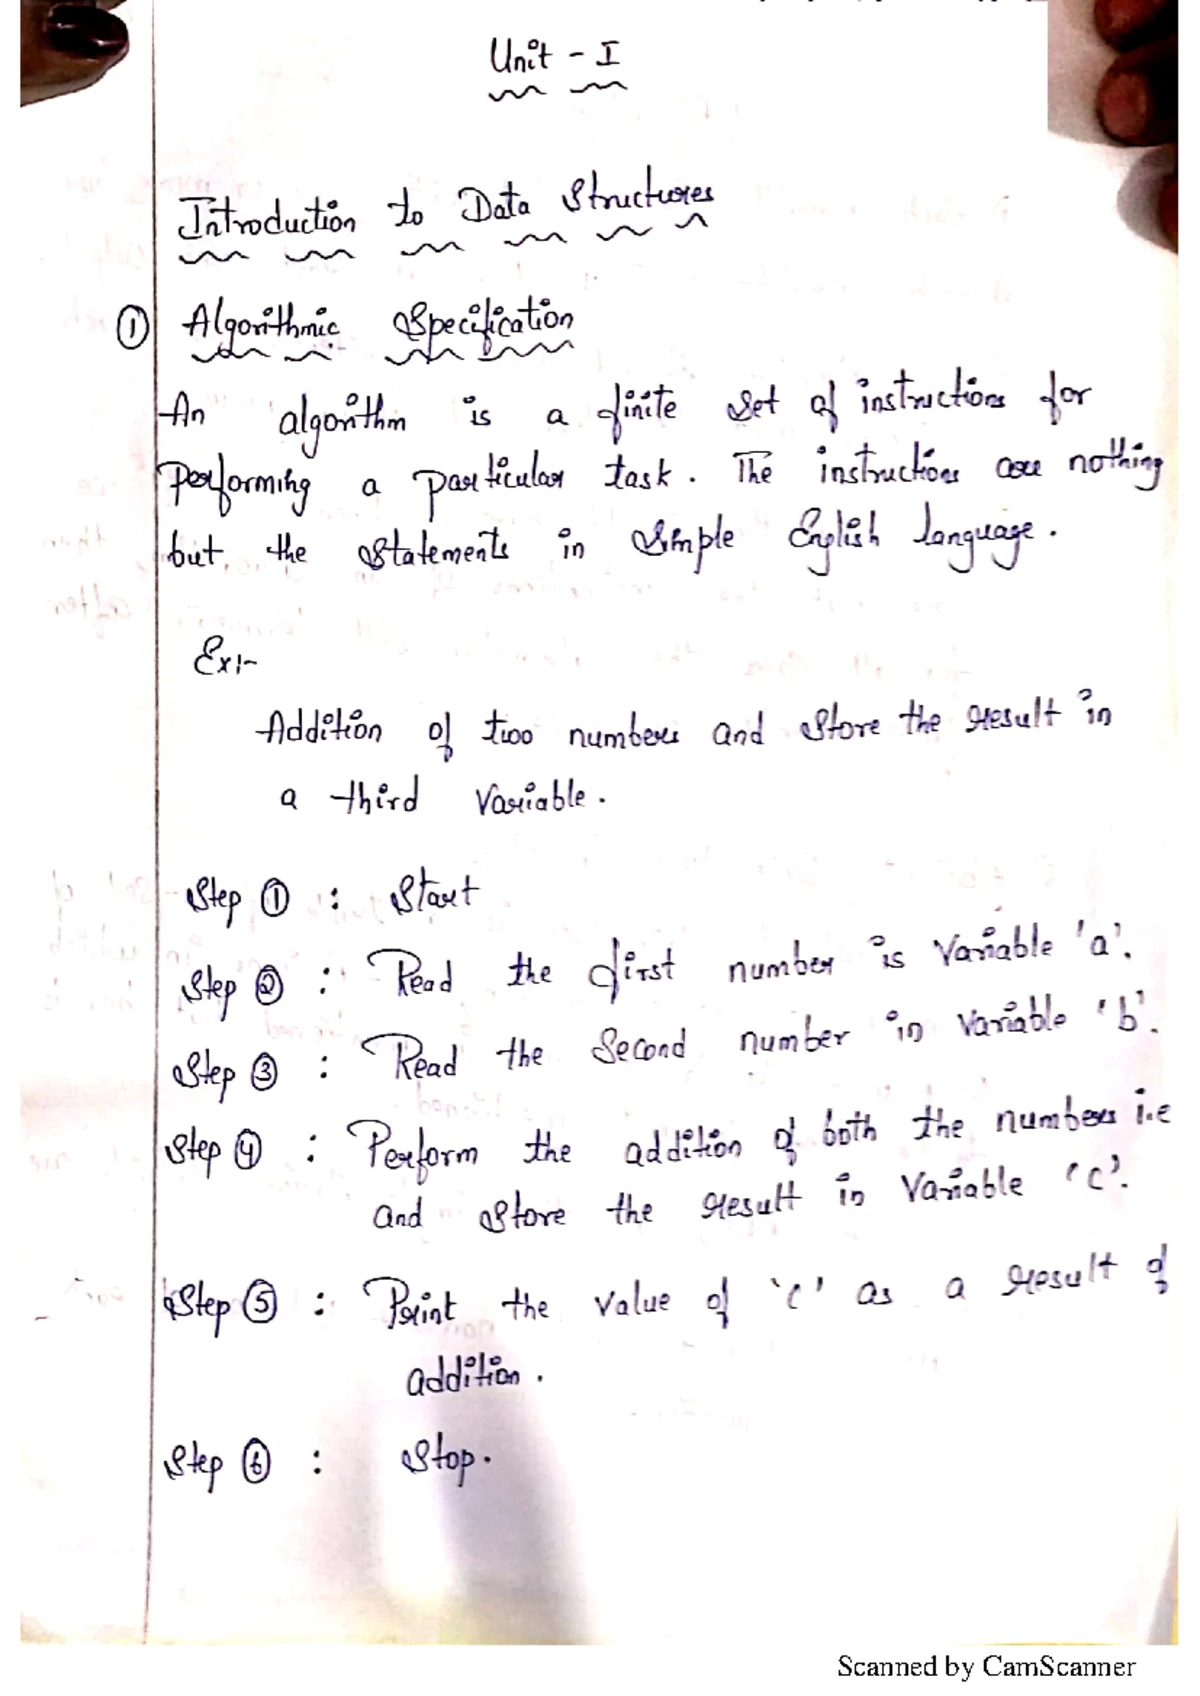 Unit - I
Introduction to Data Structures
① Algorithmic Specification
An algorithm is a finite set of instructions for
performing a particular task. The instructions are nothing
but the statements in simple English language.
Ex:-
Addition of two numbers and store the result in
a third variable.
Step ① : Start
Step ② : Read the first number is variable 'a'.
Step ③ : Read the second number in variable 'b'.
Step ④ : Perform the addition of both the numbers i.e
and store the result in variable 'c'.
Step ⑤ : Print the value of 'c' as a result of
addition.
Step ⑥ : Stop.
Scanned by CamScanner